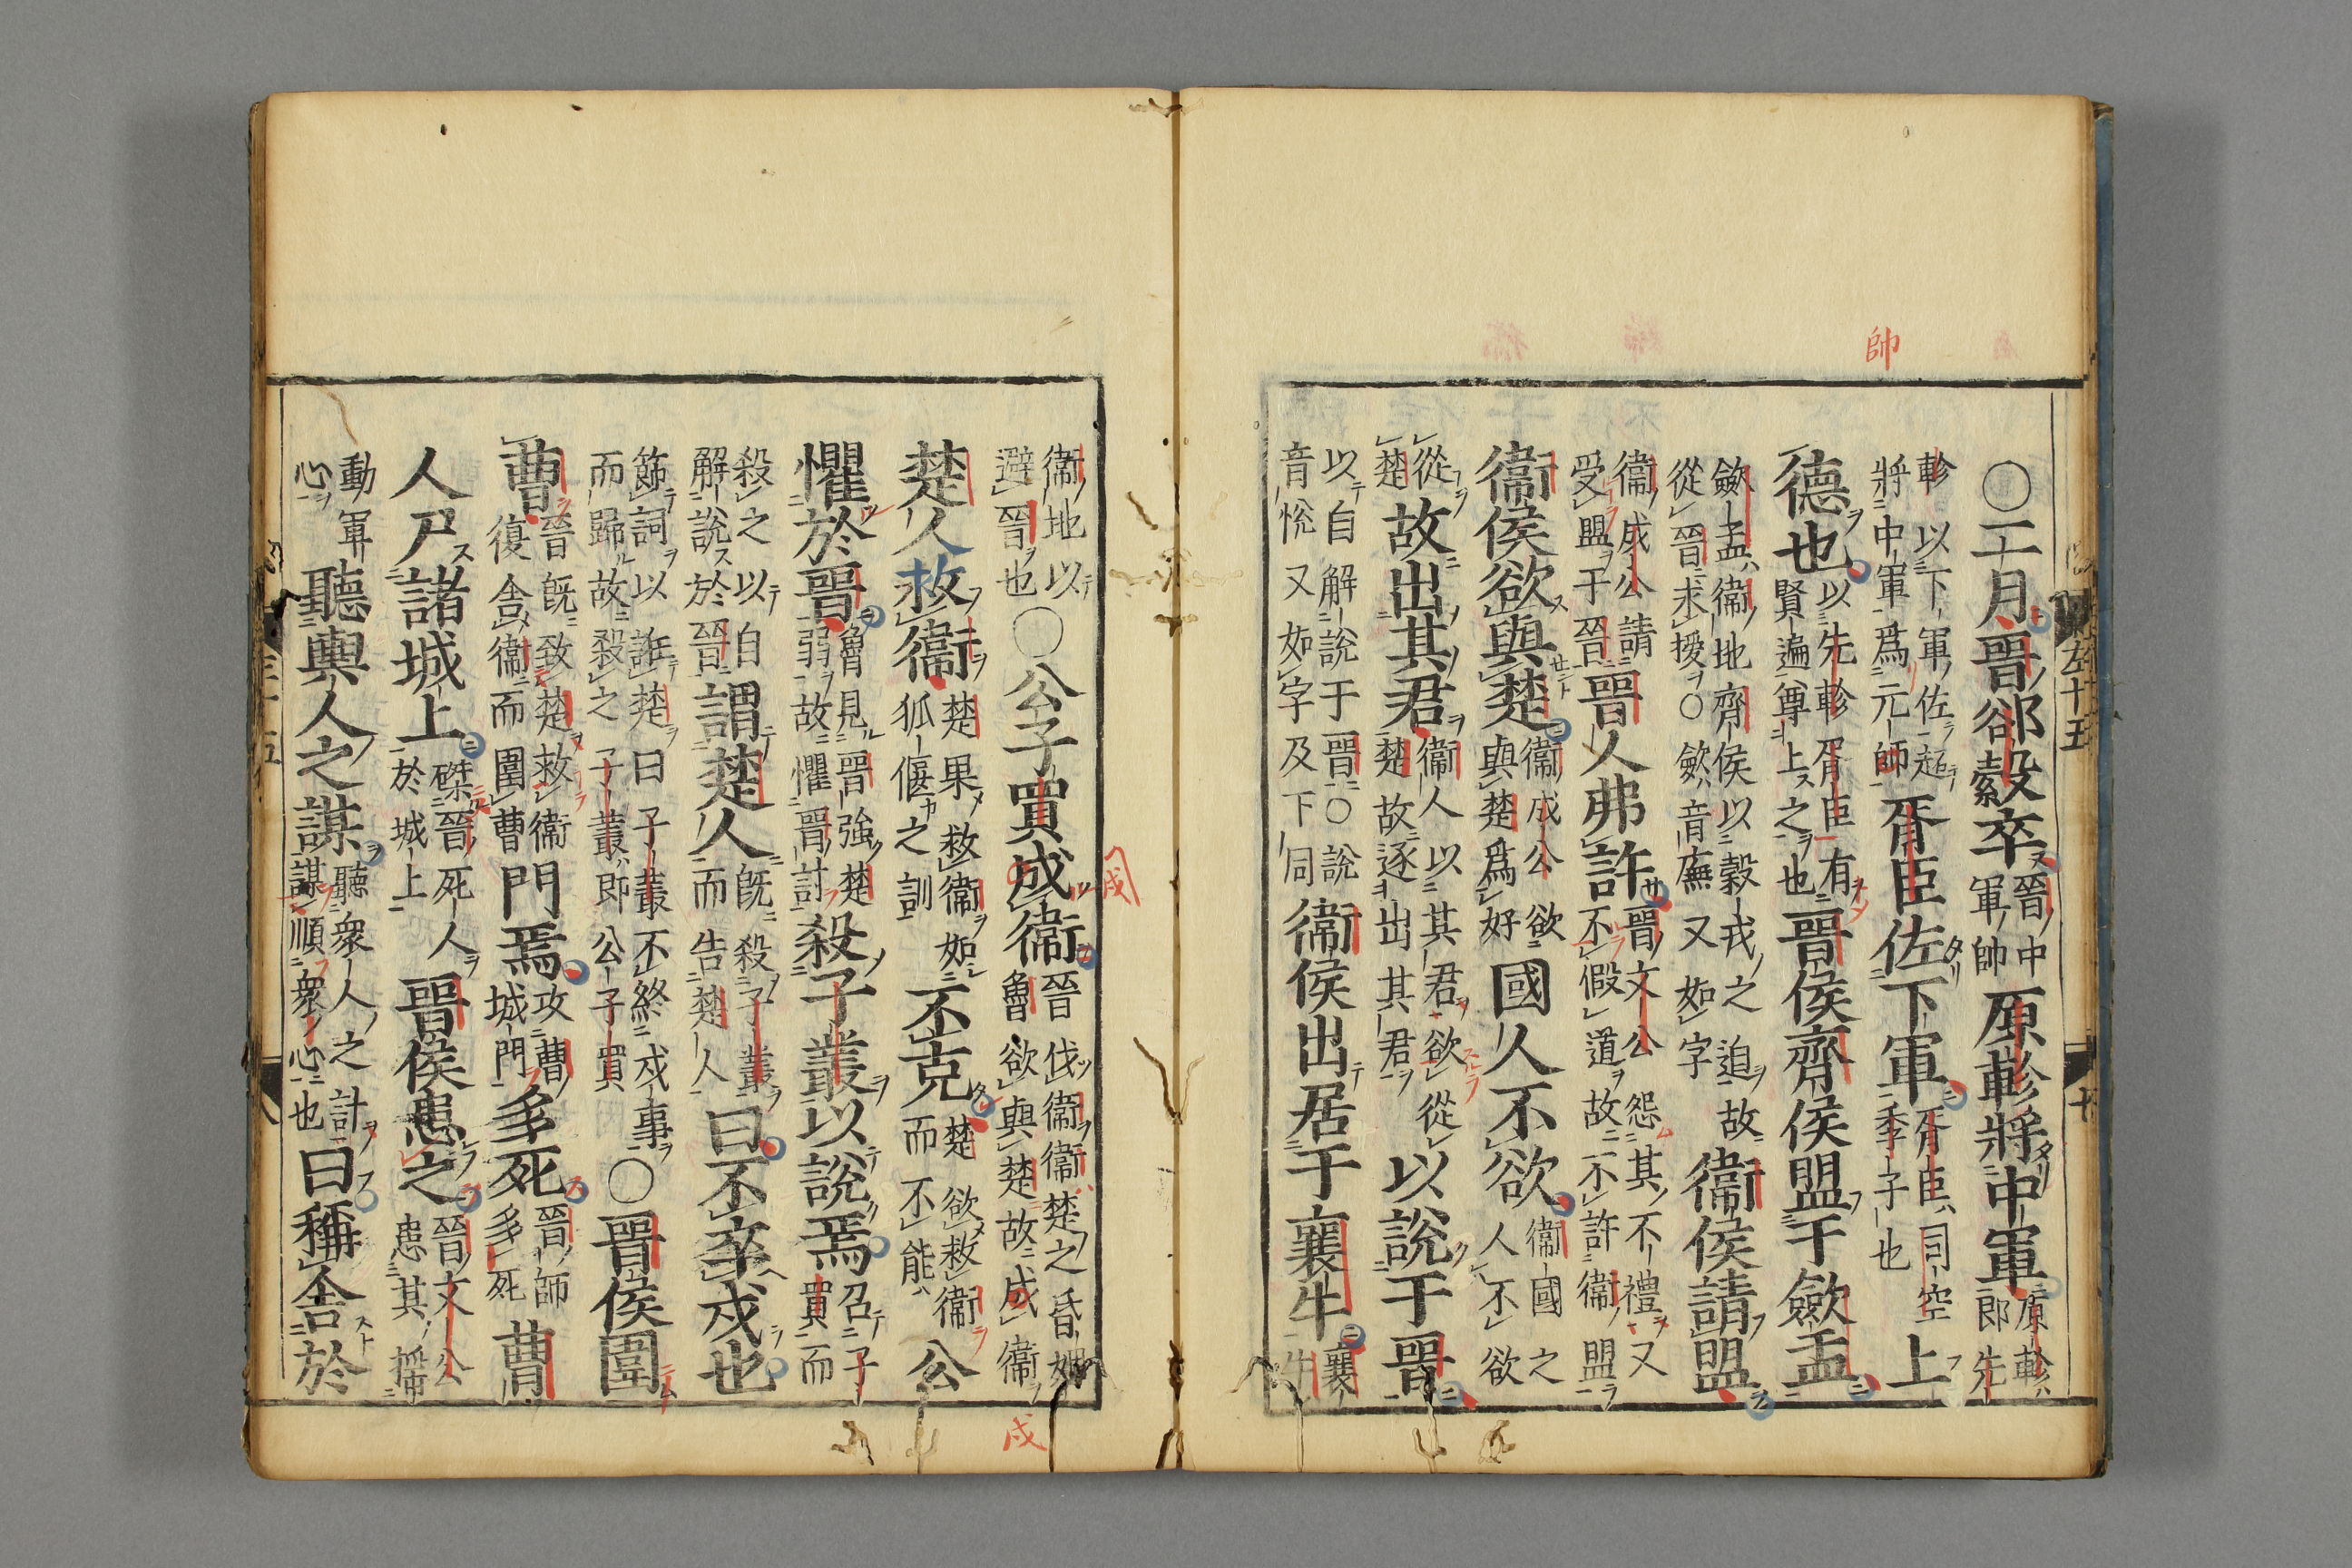 帥
○二月晉郤縠卒晉中軍帥原軫將中軍原軫即先
軫以下軍佐超將中軍爲元師胥臣佐下軍胥臣司空季子也上
德也以先軫胥臣有賢遍尊上之也晉侯齊侯盟于斂盂
斂盂衞地齊侯以穀戎之迫故從晉求援○斂音廡又如字衞侯請盟
衞成公請受盟于晉晉人弗許晉文公怨其不禮又不假道故不許衞盟
衞侯欲與楚衞成公欲與楚爲好國人不欲衞國之人不欲
從楚故出其君衞人以其君欲從楚故逐出其君以說于晉
以自解說于晉○說音悦又如字及下同衞侯出居于襄牛襄牛
左十五
十
衞地以避晉也○公子買成衞晉伐衞衞楚之昏姻魯欲與楚故成衞
戍
戍
楚人救衞楚果救衞如狐偃之訓不克楚欲救衞而不能公
懼於晉魯見晉強楚弱故懼晉討殺子叢以說焉召子買而
殺之以自解說於晉謂楚人既殺子叢而告楚人曰不卒戍也
飾詞以誑楚曰子叢不終戍事而歸故殺之子叢即公子買○晉侯圍
曹晉既致楚救衞復舍衞而圍曹門焉攻曹城門多死晉師多死曹
人尸諸城上磔晉死人於城上晉侯患之晉文公患其搖
動軍心聽輿人之謀聽衆人之計謀順衆心也曰稱舍於